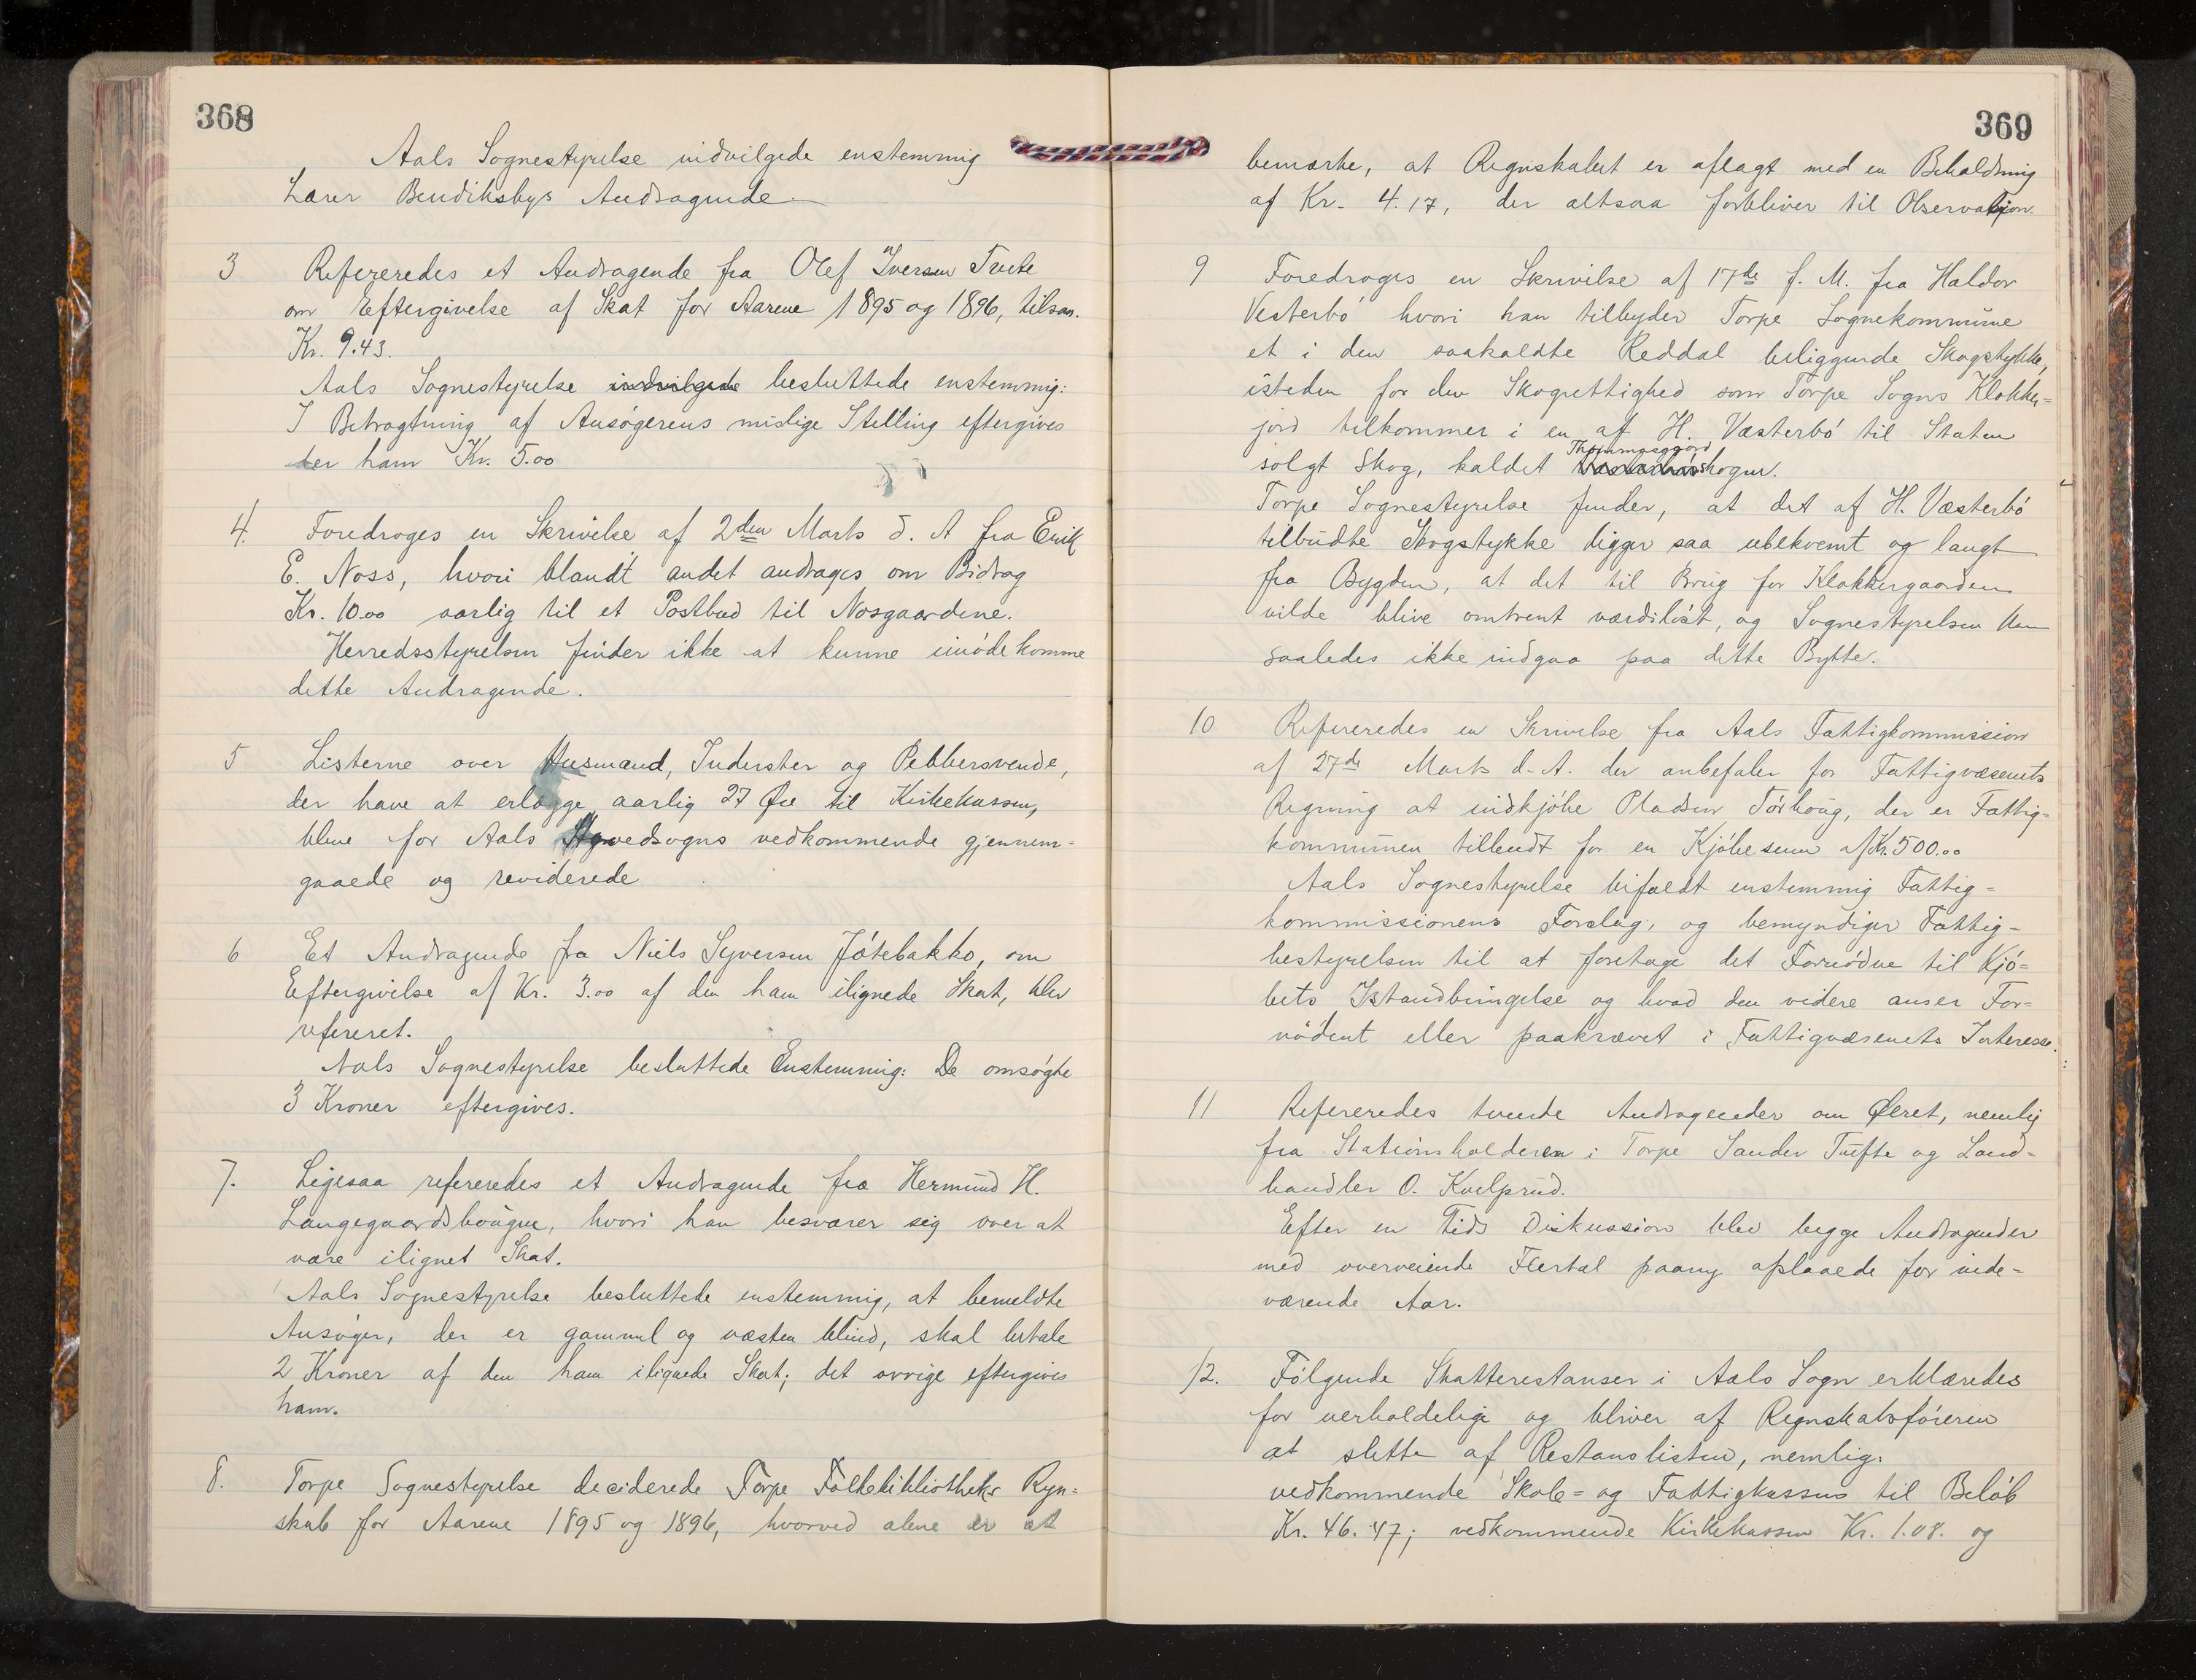 368
Aals Sognestyrelse indvilgede enstemmig
Lærer Bendiksbys Andragende
3 Refereredes et Andragende fra Olef Iversen Tvete
om Eftergivelse af Skat for Aarene 1895 og 1896, tilsam.
Kr. 9.43.
Aals Sognestyrelse indvilgede besluttede enstemmig:
I Betragtning af Ansøgerens mislige Stilling eftergives
der ham Kr. 5.00
4. Foredroges en Skrivelse af 2den Marts d. A fra Erik
E. Noss, hvori blandt andet andrages om Bidrag
Kr. 10.00 aarlig til et Postbud til Nosgaardene.
Herredsstyrelsen finder ikke at kunne imødekomme
dette Andragende.
5 Listerne over Husmænd, Inderster og Pebbersvende,
der have at erlægge aarlig 27 Øre til Kirkekassen,
bleve for Aals Hovedsogns vedkommende gjennem-
gaaede og reviderede
6 Et Andragende fra Niels Syversen Jótebakko, om
Eftergivelse af Kr. 3.00 af den ham ilignede Skat, blev
refereret.
Aals Sognestyrelse besluttede Enstemmig: De omsøgte
3 Kroner eftergives.
7. Ligesaa refereredes et Andragende fra Hermund H.
Langegaardshougen, hvori han besværer sig over at
være ilignet Skat.
Aals Sognestyrelse besluttede enstemmig, at bemeldte
Ansøger, der er gammel og næsten blind, skal betale
2 Kroner af den ham ilignede Skat; det øvrige eftergives
ham.
8. Torpe Sognestyrelse deciderede Torpe Folkebibliotheks Regn-
skab for Aarene 1895 og 1896, hvorved alene er at
369
bemærke, at Regnskabet er aflagt med en Beholdning
af Kr. 4.17, der altsaa forbliver til Observation
9 Foredroges en Skrivelse af 17de f. M. fra Haldor
Vesterbó hvori han tilbyder Torpe Sognekommune
et i den saakaldte Reddal beliggende Skogstykke,
isteden for den Skogrettighed som Torpe Sogns Klokker-
jord tilkommer i en af H. Væsterbó til Staten
solgt Skog, kaldet Thoummasgaard skogen.
Torpe Sognestyrelse finder, at det af H. Væsterbó
tilbudte Skogstykke ligger saa ubekvemt og langt
fra Bygden, at det til Brug for Klokkergaarden
vilde blive omtrent værdiløst, og Sognestyrelsen kan
saaledes ikke indgaa paa dette Bytte.
10 Refereredes en Skrivelse fra Aals Fattigkommission
af 27de Marts d. A. der anbefaler for Fattigvæsenets
Regning at indkjøbe Pladsen Tórhoug, der er Fattig-
kommunen tilbudt for en Kjøbesum af Kr. 500.00
Aals Sognestyrelse bifaldt enstemmig Fattig-
kommissionens Forslag, og bemyndiger Fattig-
bestyrelsen til at foretage det Fornødne til Kjó-
bets Istandbringelse og hvad den videre anser For-
nødent eller paakrævet i Fattigvæsenets Interesse.
11 Refereredes tvende Andragender om Ølret, nemlig
fra Stationsholderen i Torpe Sander Tufte og Land-
handler O. Kvelprud.
Efter en Tids Diskussion blev begge Andragender
med overveiende Flertal paany afslaaede for inde-
værende Aar.
12. Følgende Skatterestanser i Aals Sogn erklæredes
for uerholdelige og bliver af Regnskabsføreren
at slette af Restanslisten, nemlig:
vedkommende Skole- og Fattigkassens til Beløb
Kr. 46.47; vedkommende Kirkekassen Kr. 1.08. og